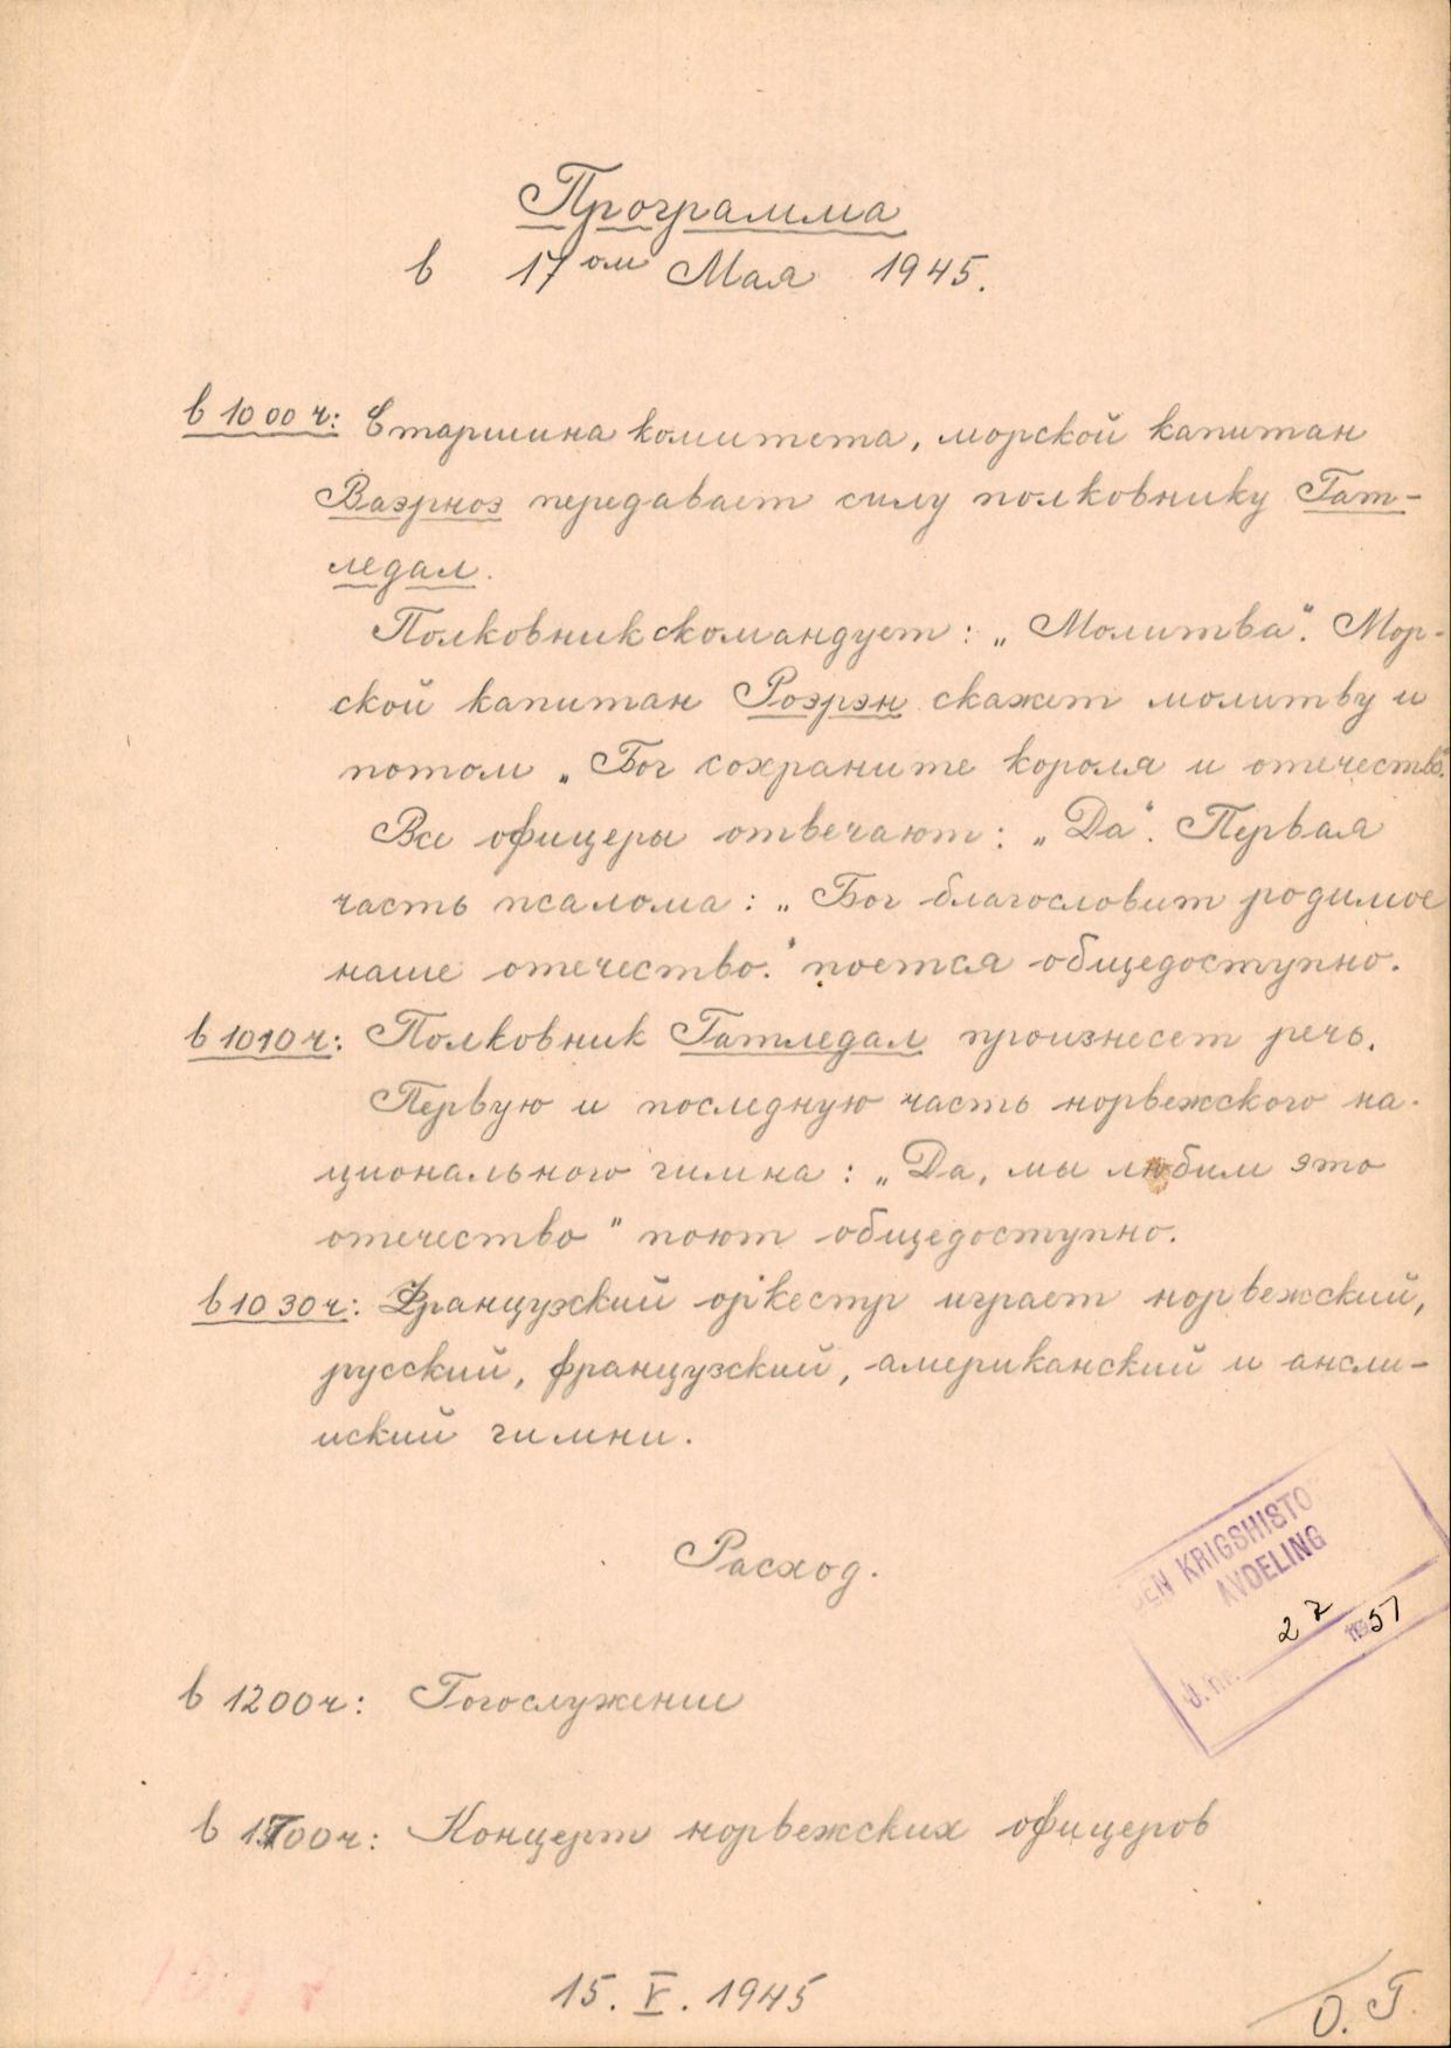 Программа
в 17ом Мая 1945.
в 10 00 ч: Старшина комитета, морской капитан
Ваэрноэ передавает силу полковнику Гат-
ледал.
Полковник скомандует: „Молитва“. Мор-
ской капитан Роэрэн скажет молитву и
потом „Бог сохраните короля и отечество.
Все офицеры отвечают: „Да“. Первая
часть псалома: „Бог благословит родимое
наше отечество.“ поется общедоступно.
в 10 10 ч: Полковник Гатледал произнесет речь.
Первую и последную часть норвежского на-
ционального гимна: „Да, мы любим это
отечество“ поют общедоступно.
в 10 30 ч: Французский оркестр играет норвежский,
русский, французский, американский и англи-
иский гимни.
Расход.
DEN KRIGSHISTO
AVDELING
J. nr. 27 1957
в 12 00 ч: Гогослужение
в 1700 ч: Концерт норвежских офицеров
15. V. 1945
О. Г.